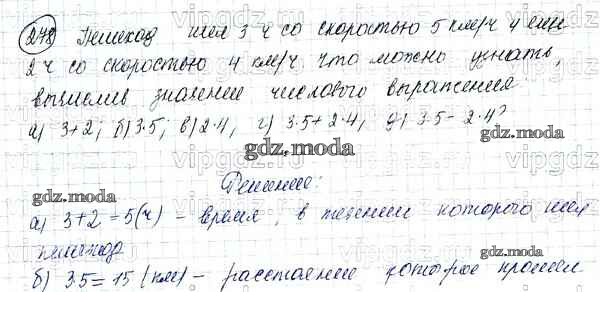 278 Пешеход шел 3 ч со скоростью 5 км/ч и еще
2 ч со скоростью 4 км/ч что можно узнать,
вычислив значение числового выражения
а) 3+2; б) 3·5; в) 2·4, г) 3·5+2·4, д) 3·5-2·4?
gdz.moda
Решение:
gdz.moda
gdz.moda
а) 3+2=5(ч) - время, в течении которого шел
пешеход
gdz.moda
б) 3·5=15 (км) - расстояние которое прошел
gdz.moda